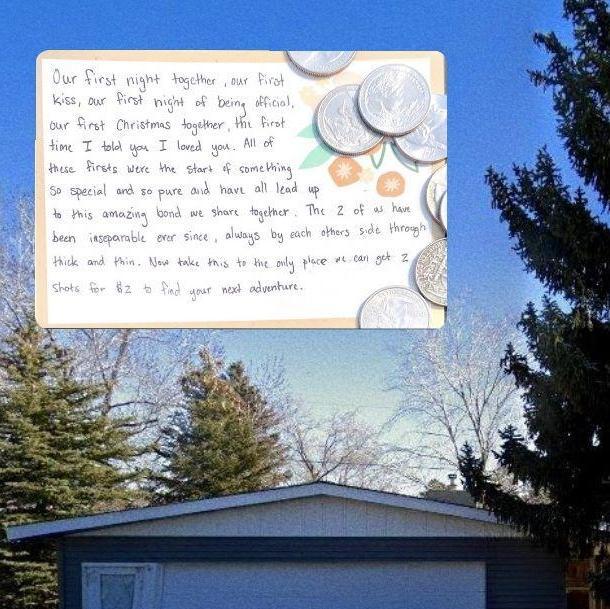 Our first night together, our first
kiss, our first night of being official,
our first Christmas together, the first
time I told you I loved you. All of
these firsts were the start of something
so special and so pure and have all lead up
to this amazing bond we share together. The 2 of us have
been inseparable ever since, always by each others side through
thick and thin. Now take this to the only place we can get 2
shots for $2 to find your next adventure.